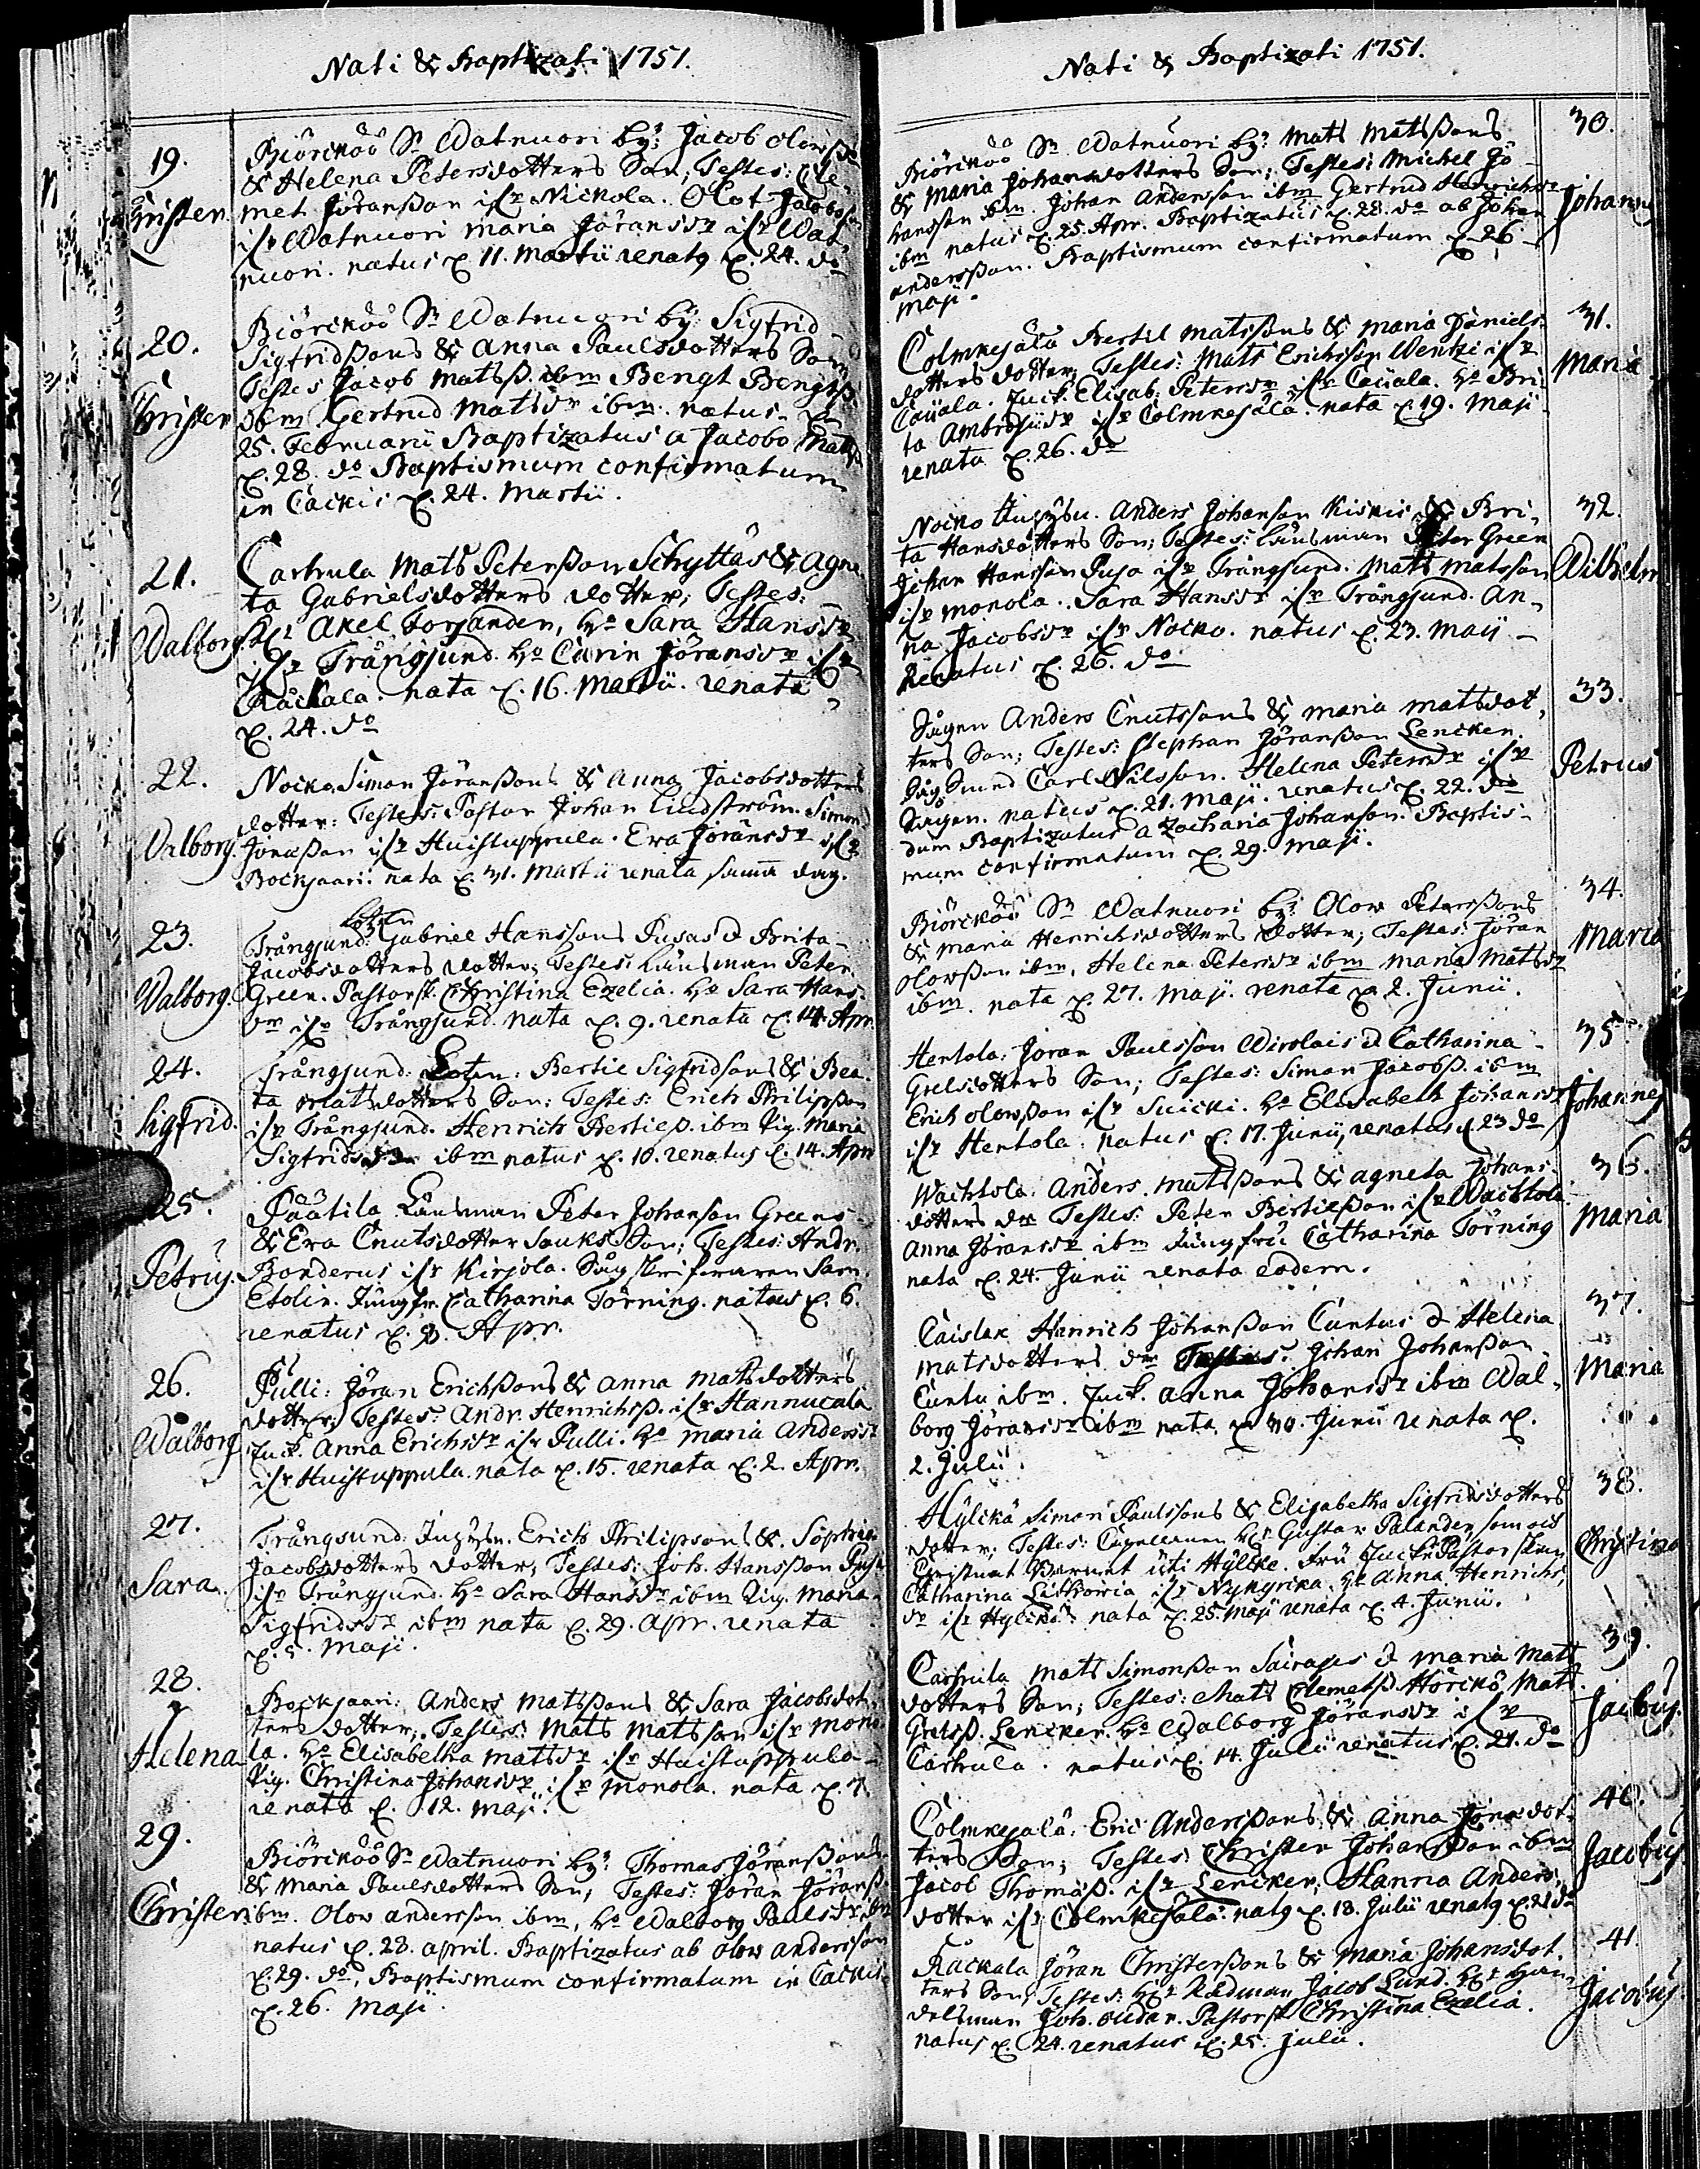 Nati & Baptizati 1751.
19.
Christer.
Biörcköö Sn Watnuori by: Jacob Olofß
& Helena Petersdotters Son; Testes: Cle-
met Jöranßon ifr Nickola. Olof Jacobson
ifr Watnuori Maria Jöransdr ifr Wat-
nuori. natus d. 11. Martii renatg d. 24. do
20.
Christer
Biörcköö Sn Watnuori by: Sigfrid
Sigfridßons & Anna Paulsdotters Son;
Testes Jacob Matsß. ibm Bengt Bengtß.
ibm. Gertrud Matsdr ibm. natus d.
25. Februarii Baptizatus a Jacobo Matsß
d. 28. do Baptismum confirmatum
in Cackis d. 24. Martii.
21.
Walborg.
Carhula Mats Peterßon Schyttäs & Agne
ta Gabrielsdotters dotter; Testes:
Hr Axel Forsanden, Ho Sara Hansdr
ifr Trångsund. Ho Carin Jöransdr ifr
Räckala. nata d. 16. Martii. renata
d. 24. do
22.
Valborg.
Nocko. Simon Jöranßons & Anna Jacobsdotters
dotter: Testes: Pastor Johan Lindström. Simon
Jonaßon ifr Huistuppula. Eva Jöransdr ifr
Bockjaari. nata d. 31. Martii renata sama dag.
23.
Walborg.
Trångsund: Gabriel Hanssons Pusas & Brita
Jacobsdotters dotter; Testes: Länsman Peter
Green. Pastorsk. Christina Ezelia. Ho Sara Hans-
dr ifr Trångsund. nata d. 9. renata d. 14. Apr.
24.
Sigfrid.
Trångsund: Bertil Sigfridsons & Bea-
ta Matsdotters Son: Testes: Erich Philipßon
ifr Trångsund. Henrich Bertilß. ibm Pig. Maria
Sigfridsdr ibm natus d. 10. renatus d. 14. Apr
25.
Petrus.
Päätila Länsman Peter Johanson Greens
& Eva Cnutsdotter Sauks Son; Testes: Andr.
Bonderus ifr Kirjola. Sågskrifwaren Sam.
Etolin. Jungfr. Catharina Törning. natus d. 6.
renatus d. 8. Apr.
26.
Walborg
Pulli: Jöran Erichßons & Anna Matsdotters
dotter; Testes: Andr. Henrichsß. ifr Hannucala
Anna Erichsdr ifr Pulli. Ho Maria Andersdr
ifr Huistuppula nata d. 15. renata d. 2. Apr.
27.
Sara.
Trångsund. Erich Philipsons & Sophia
Jacobsdotters dotter; Testes: Joh. Hanßon Pusa
ifr Trångsund. Ho Sara Hansdr ibm Pig. Maria
Sigfridsdr ibm nata d. 29. Apr. renata
d. 5. Maji.
28.
Helena
Bockjaari: Anders Matsßons & Sara Jacobsdot-
ters dotter; Testes: Mats Matsson ifr Mono
la. Ho Elisabetha Matsdr ifr Huistuppula
Pig. Christina Johansdr ifr Monola. nata d. 7.
renata d. 12. Maji.
29.
Christer
Biörcköö Sn Watnuori by: Thomas Jöranßons
& Maria Paulsdotters Son; Testes: Jöran Jöranß.
ibm. Olov Andersson ibm, Ho Walborg Paulsdr ibm
natus d. 28. April. Baptizatus ab Olov Andersson
d. 29. do, Baptismum confirmatum in Cackis
d. 26. Maji.
Nati & Baptizati 1751.
30.
Johannes
Biörcköö Sn Watnuori by: Mats Matsßons
& Maria Johansdotters Son; Testes: Michel Jo-
hansson ibm. Johan Andersson ibm Gertrud Henrichsdr
ibm natus d. 25. Apr. Baptizatus d. 28. do ab Johan
Anderßon. Baptismum confirmatum d. 26
Maji.
31.
Maria
Colmkesälä Bertil Matsßons & Maria Daniels-
dotters dotter; Testes: Mats Erichsson Wenki ifr
Caüala. Elisab. Petersdr ifr Caüala. Ho Bri-
ta Ambrosiidr ifr Colmkesälä. nata d. 19. Maji
renata d. 26. do
32.
Wilhelm
Nocko Anders Johanson Kiskis & Bri-
ta Hansdotters Son; Testes: Länsman Peter Green
Johan Hansson Pusa ifr Trångsund. Mats Matsson
ifr Monola. Sara Hansdr ifr Trångsund. An-
na Jacobsdr ifr Nocko. natus d. 23. Maij
Renatus d. 26. do
33.
Petrus
Sågen Anders Cnutssons & Maria Matsdot-
ters Son; Testes: Stephan Jöranßon Lencken.
Carl Nilsson. Helena Petersdr ifr
Sågen. natus d. 21. Maji. renatus d. 22. do
dum Baptizatus a Zacharia Johanson. Baptis-
mum confirmatum d. 29. Maji.
34.
Maria
Biörcköö Sn Watnuori by: Olow Peterßons
& Maria Henrichsdotters Dotter; Testes: Jöran
Olowßon ibm, Helena Petersdr ibm Maria Matsdr
ibm. nata d. 27. Maji. renata d. 2. Junii.
35.
Johannes
Hentola: Joran Paulsson Wirolais & Catharina
Grelsdotters Son; Testes: Simon Jacobß. ibm
Erich Olowßon ifr Suicki. Ho Elisabeth Johansdr
ifr Hentola. natus d. 17. Junii, renatus d. 23 do
36.
Maria
Wachtola: Anders Matsßons & Agneta Johans-
dotters dr Testes: Peter Bertilßon ifr Wachtola
Anna Jöransdr ibm Jungfru Catharina Törning
nata d. 24. Junii renata eodem.
37.
Maria
Caislax Henrich Johanßon Cuntus & Helena
Matsdotters dr Testes: Johan Johanßon
Cuntu ibm. Anna Johansdr ibm Wal-
borg Jöransdr ibm nata d. 30. Junii renata d.
2. Julii.
38.
Christina
Hylckä Simon Paulssons & Elisabetha Sigfridsdotters
dotter; Testes: Capellanen Hr Gustav Palander, som och
Christnat Barnet uti Hylcke. Fru Pastorskan
Catharina Lithovia ifr Nykyrka. Ho Anna Henrichs-
dr ifr Hylckä nata d. 25. Maji renata d. 4. Junii.
39.
Jacobus.
Carhula Mats Simonßon Sairajes & Maria Mats-
dotters Son; Testes: Mats Clemetß Hörckö, Mats
Grelsß. Lencken. Ho Walborg Jöransdr ifr
Carhula. natus d. 14. Julii renatus d. 21. do
40.
Jacobus
Colmkesälä: Eric Anderßons & Anna Jönsdot-
ters Son; Testes: Christer Johanßon ibm
Jacob Thomäß. ifr Lencken; Hanna Anders-
dotter ifr Colmkesälä. natg d. 18. Julii renatg d. 21 do
41.
Jacobus
Räckala Jöran Christerßons & Maria Johansdot-
ters Son; Testes: Hr Rådman Jacob Lund. Hr Han-
delsman Joh. Pastorsk Christina Ezelia.
natus d. 24. renatus d. 25. Julii.